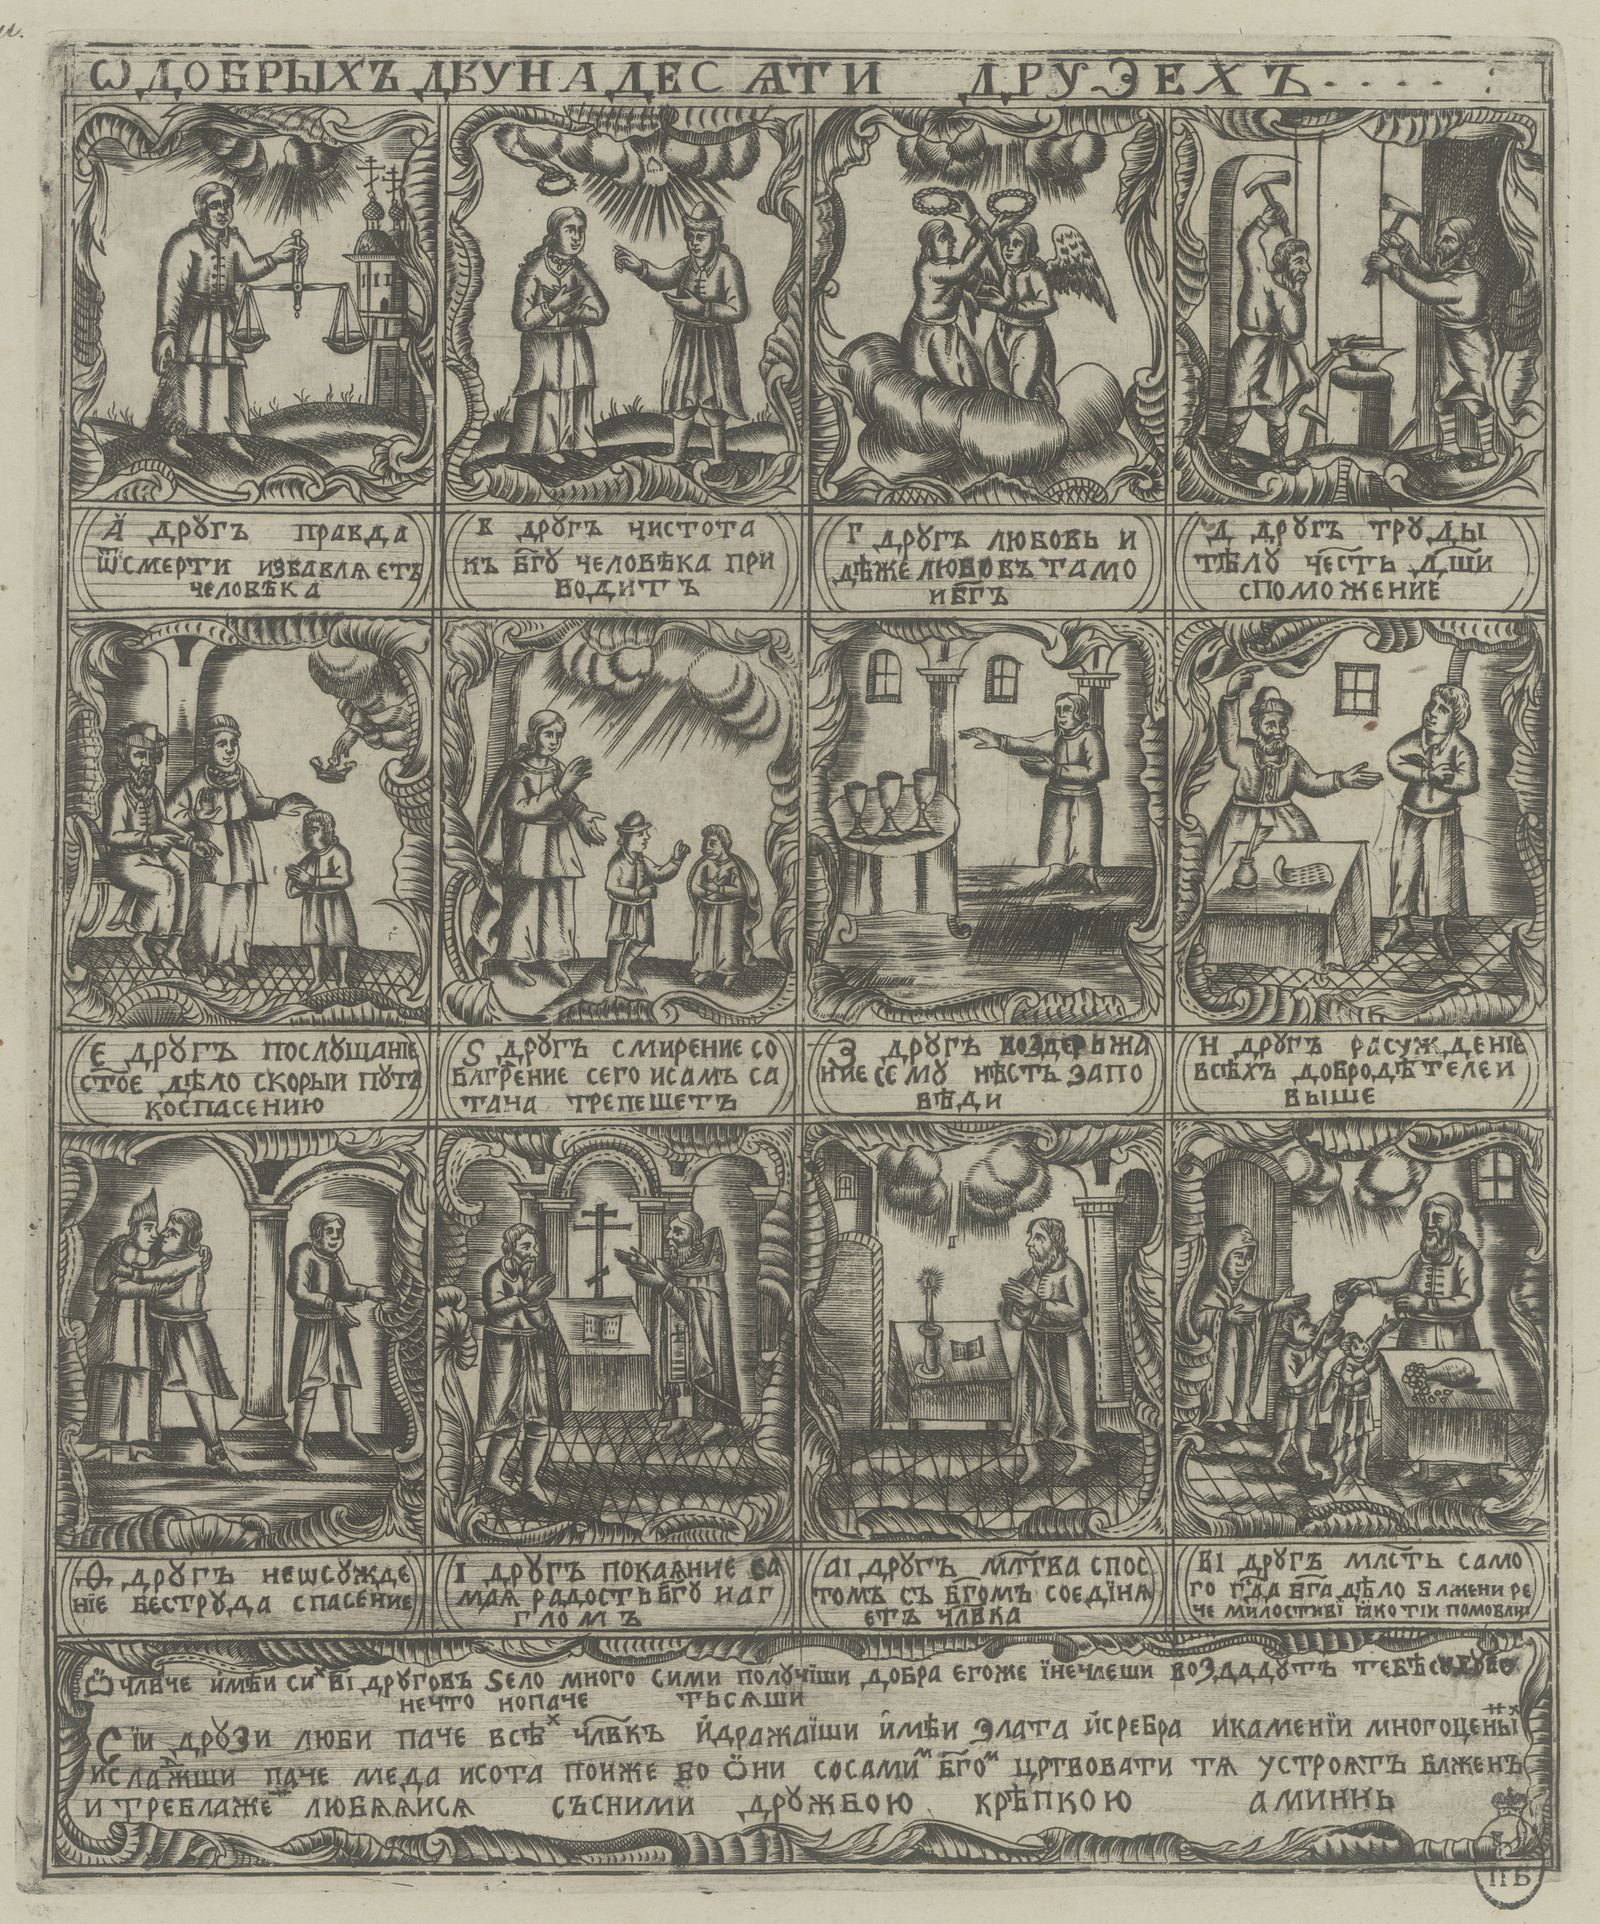 Ѡ ДОБРЫХЪ ДВУНАДЕСѦТИ ДРУЗЕХЪ
А҃ ДРꙊГЪ ПРАВДА
Ѿ СМЕРТИ ИЗБАВЛѦЕТЪ
ЧЕЛОВѢКА
В ДРꙊГЪ ЧИСТОТА
КЪ БГ҃Ꙋ ЧЕЛОВѢКА ПРИ
ВОДИТЪ
Г ДРꙊГЪ ЛЮБОВЬ И
ДѢЖЕ ЛЮБОВЪ ТАМО
И БГ҃Ъ
Д ДРꙊГЪ ТРꙊДЫ
ТѢЛꙊ ЧЕ҃СТЬ Д҃ШИ
СПОМОЖЕНИЕ
Е ДРꙊГЪ ПОСЛꙊШАНІЕ
СТ҃ОЕ ДѢЛО СКОРЫИ ПꙊТЬ
КОСПАСЕНИЮ
Ѕ ДРꙊГЪ СМИРЕНИЕ СО
БЛГ҃РЕНИЕ СЕГО И САМЪ СА
ТАНА ТРЕПЕЩЕТЪ
З ДРꙊГЪ ВОЗДЕРЬЖА
НИЕ СЕМꙊ НѢСТЬ ЗАПО
ВѢДИ
Н ДРꙊГЪ РАСꙊЖДЕНІЕ
ВСѢХЪ ДОБРОДѢТЕЛЕИ
ВЫШЕ
Ѳ ДРꙊГЪ НЕѠСꙊЖДЕ
НІЕ БЕСТРꙊДА СПАСЕНИЕ
І ДРꙊГЪ ПОКАѦНИЕ СА
МАѦ РАДОСТЬ БГ҃Ꙋ И АГ
ГЛОМЪ
АІ ДРꙊГЪ МЛ҃ТВА СПОС
ТОМЪ СЪ БГ҃ОМЪ СОЕДІНѦ
ЕТЪ ЧЛВ҃КА
ВІ ДРꙊГЪ МЛС҃ТЬ САМО
ГО Г҃ДА БГ҃А ДѢЛО БЛЖЕНИ РЕ
ЧЕ МИЛОСТИВІ ІАКО ТІИ
Ѽ ЧЛВ҃ЧЕ ИМѢИ СИХ ВІ ДРꙊГОВЪ ЅЕЛО МНОГО СИМИ ПОЛꙊЧІШИ ДОБРА ЕГОЖЕ ВОЗДАДꙊТЪ ТЕБѢ
НЕЧТО НОПАЧЕ ТЬСѦЩИ
СІИ ДРꙊЗИ ЛЮБИ ПАЧЕ ВСѢХ ЧЛВ҃КЪ ИДРАЖАІШИ ИМѢИ ЗЛАТА ИСРЕБРА ИКАМЕНІИ МНОГОЦЕНЫ
ИСЛАЖШИ ПАЧЕ МЕДА ИСОТА ПОНЖЕ БО ѼНИ СОСАМИМ БГ҃ОМ ЦР҃ТВОВАТИ ТѦ УСТРОѦТЪ БЛЖЕНЪ
И ТРЕБЛАЖЕН ЛЮБѦѦИСѦ СЪСНИМИ ДРꙊЖБОЮ КРѢПКОЮ АМИННЬ
ПБ